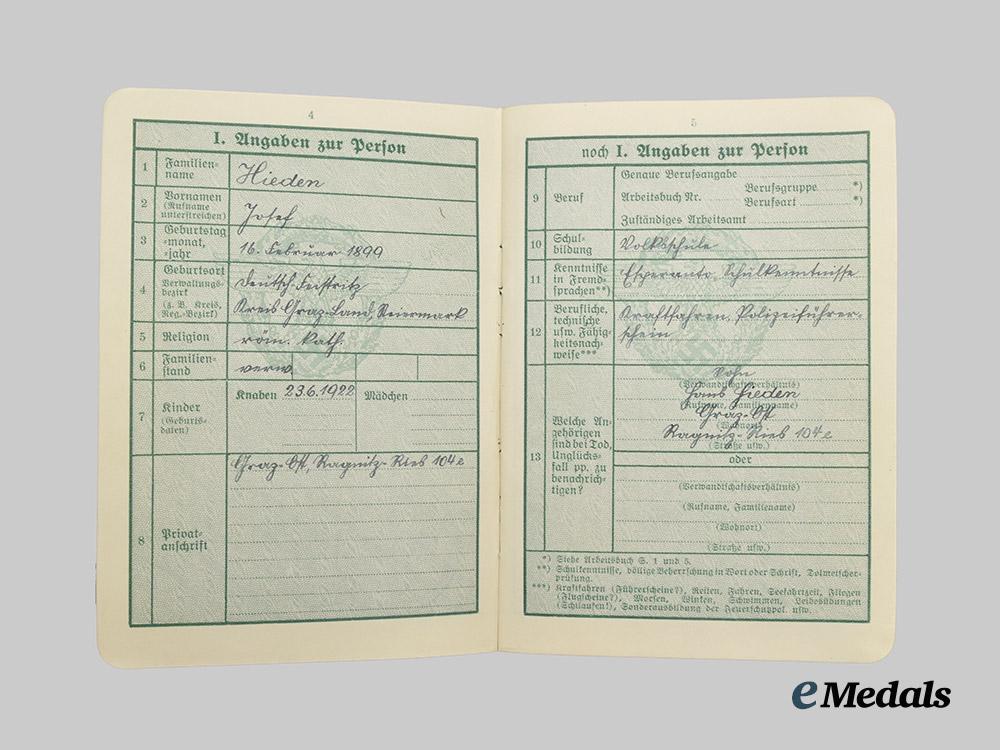 4
I. Angaben zur Person
1 Familien=
name
Hieden
2 Vornamen
(Rufname
unterstreichen)
Josef
3 Geburtstag
=monat,
=jahr
16. Februar 1899
4 Geburtsort
Verwaltungs=
bezirk
(z. B. Kreis,
Reg.=Bezirk)
Deutsch-Feistritz
Kreis Graz-Land, Steiermark
5 Religion
röm. kath.
6 Familien=
stand
verw.
7 Kinder
(Geburts=
daten)
Knaben 23.6.1922 Mädchen
8 Privat=
anschrift
Graz-Ost, Ragnitz-Ries 104e
5
noch I. Angaben zur Person
9 Beruf
Genaue Berufsangabe
Berufsgruppe *)
Arbeitsbuch Nr.
Berufsart *)
Zuständiges Arbeitsamt
10 Schul=
bildung
Volksschule
11 Kenntnisse
in Fremd=
sprachen**)
Esperanto, Schulkenntnisse
12 Berufliche,
technische
usw. Fähig=
keitsnach=
weise***
Kraftfahren, Polizeiführer-
schein
13 Welche An=
gehörigen
sind bei Tod,
Unglücks=
fall pp. zu
benachrich=
tigen?
Sohn
(Verwandtschaftsverhältnis)
Hans Hieden
(Rufname, Familienname)
Graz-Ost
(Wohnort)
Ragnitz-Ries 104e
(Straße usw.)
oder
(Verwandtschaftsverhältnis)
(Rufname, Familienname)
(Wohnort)
(Straße usw.)
*) Siehe Arbeitsbuch S. 1 und 5.
**) Schulkenntnisse, völlige Beherrschung in Wort oder Schrift, Dolmetscher=
prüfung.
***) Kraftfahren (Führerscheine?), Reiten, Fahren, Seefahrtzeit, Fliegen
(Flugscheine?), Morsen, Winken, Schwimmen, Leibesübungen
(Schilaufen!), Sonderausbildung der Feuerschutzpol. usw.
eMedals